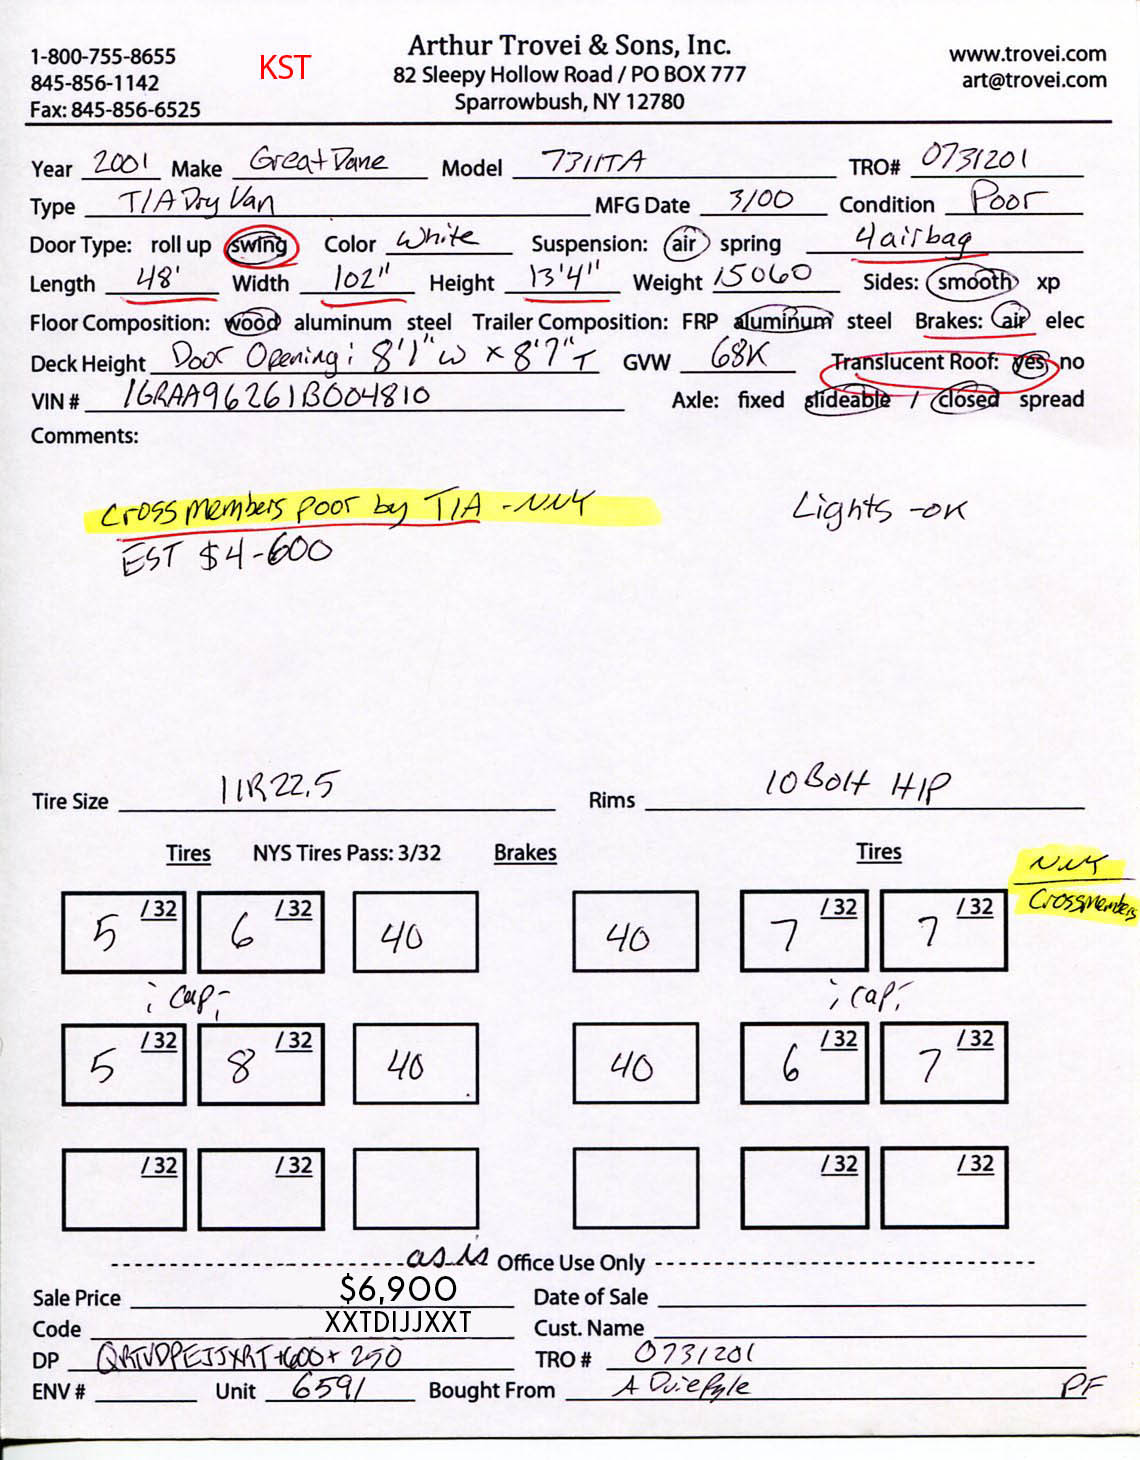 1-800-755-8655
845-856-1142
Fax: 845-856-6525
KST
Arthur Trovei & Sons, Inc.
82 Sleepy Hollow Road / PO BOX 777
Sparrowbush, NY 12780
www.trovei.com
art@trovei.com
Year 2001 Make Great Dane Model 7311TA TRO# 0731201
Type T/A Dry Van MFG Date 3/00 Condition Poor
Door Type: roll up swing Color White Suspension: air spring 4 airbag
Length 48' Width 102" Height 13'4" Weight 15060 Sides: smooth xp
Floor Composition: wood aluminum steel Trailer Composition: FRP aluminum steel Brakes: air elec
Deck Height Door Opening: 8'1"W x 8'7"T GVW 68K Translucent Roof: yes no
VIN # 1GRAA96261B004810 Axle: fixed slideable / closed spread
Comments:
Crossmembers poor by T/A - NNY Lights -OK
EST $4-600
Tire Size 11R22.5 Rims 10 Bolt H/P
Tires NYS Tires Pass: 3/32 Brakes Tires
NNY
Crossmembers
5 /32 6 /32 40 40 7 /32 7 /32
; cap; ; cap;
5 /32 8 /32 40 40 6 /32 7 /32
/32 /32 /32 /32
as is Office Use Only
Sale Price $6,900 Date of Sale
Code XXTDIJJXXT Cust. Name
DP +600+250 TRO # 0731201
ENV # Unit 6591 Bought From A PF